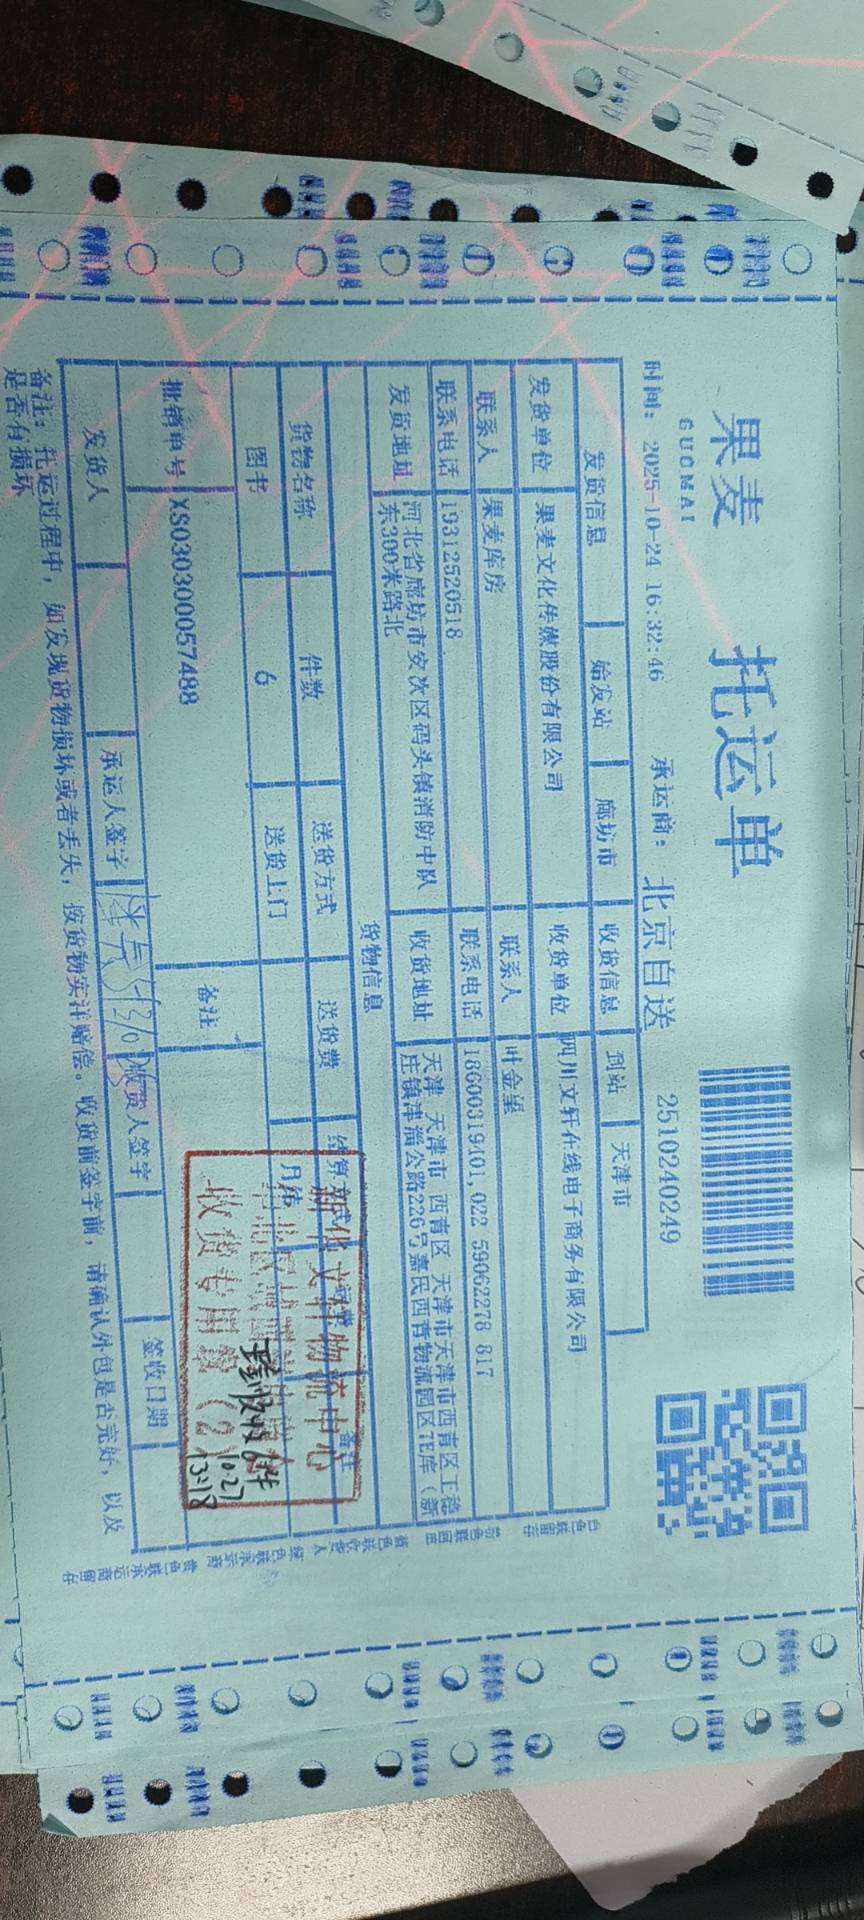 果麦 托运单
GUOMAI
时间: 2025-10-24 16:32:46 承运商: 北京自送 2510240249
发货信息 始发站 廊坊市 收货信息 到站 天津市
发货单位 果麦文化传媒股份有限公司 收货单位 四川文轩在线电子商务有限公司
联系人 果麦库房 联系人 叶金玺
联系电话 19312520518 联系电话 18600319401,022 59062278 817
发货地址 河北省廊坊市安次区码头镇消防中队
东300米路北
收货地址 天津 天津市 西青区 天津市天津市西青区王稳
庄镇津淄公路226号嘉民西青物流园区7E库(新
货物信息
货物名称 件数 送货方式 送货费 结算方式 备注
图书 6 送货上门 月结
批销单号 XS030300057488 备注
新华文轩物流中心
收货专用章(2)
实收6件
10.27
13:18
发货人 承运人签字 收货人签字 签收日期
备注: 托运过程中, 如发现货物损坏或者丢失, 按货物实洋赔偿。收货前签字前, 请确认外包是否完好, 以及
是否有损坏
白色联留存